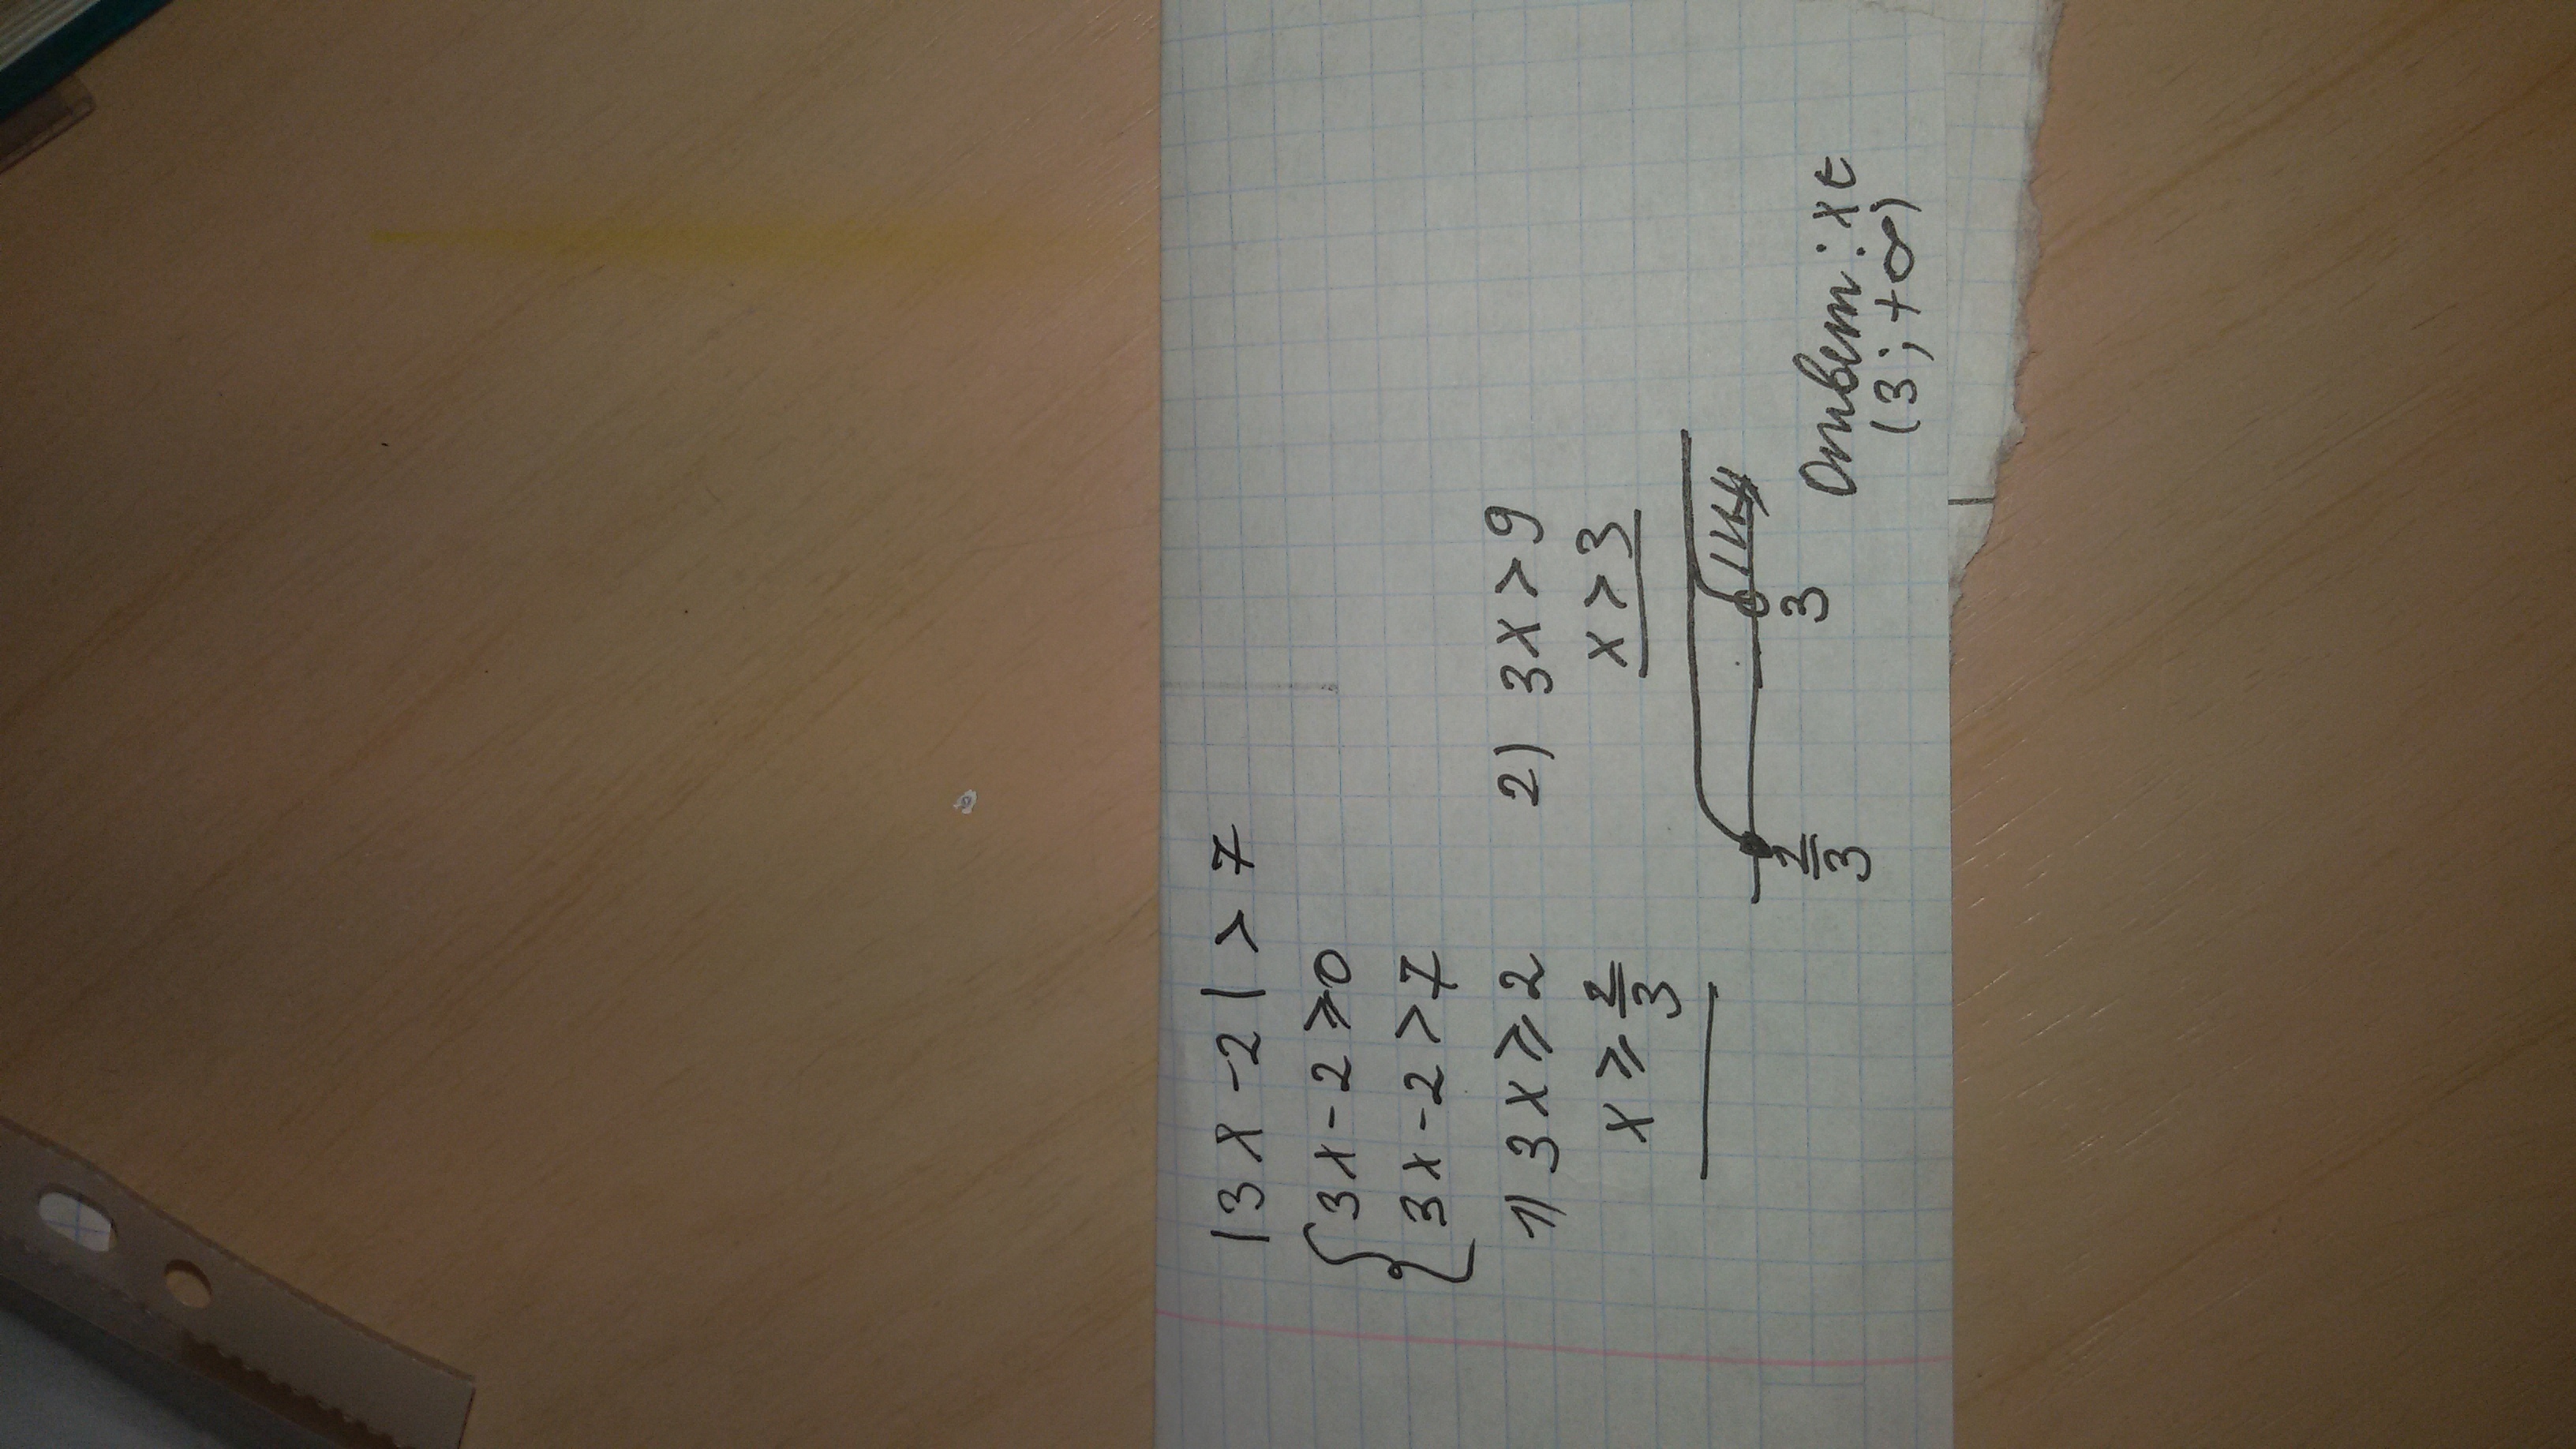 |3x-2|>7
{3x-2⩾0
3x-2>7
1) 3x⩾2 2) 3x>9
x⩾2/3 x>3
2/3 3
Ответ: x∈
(3;+∞)